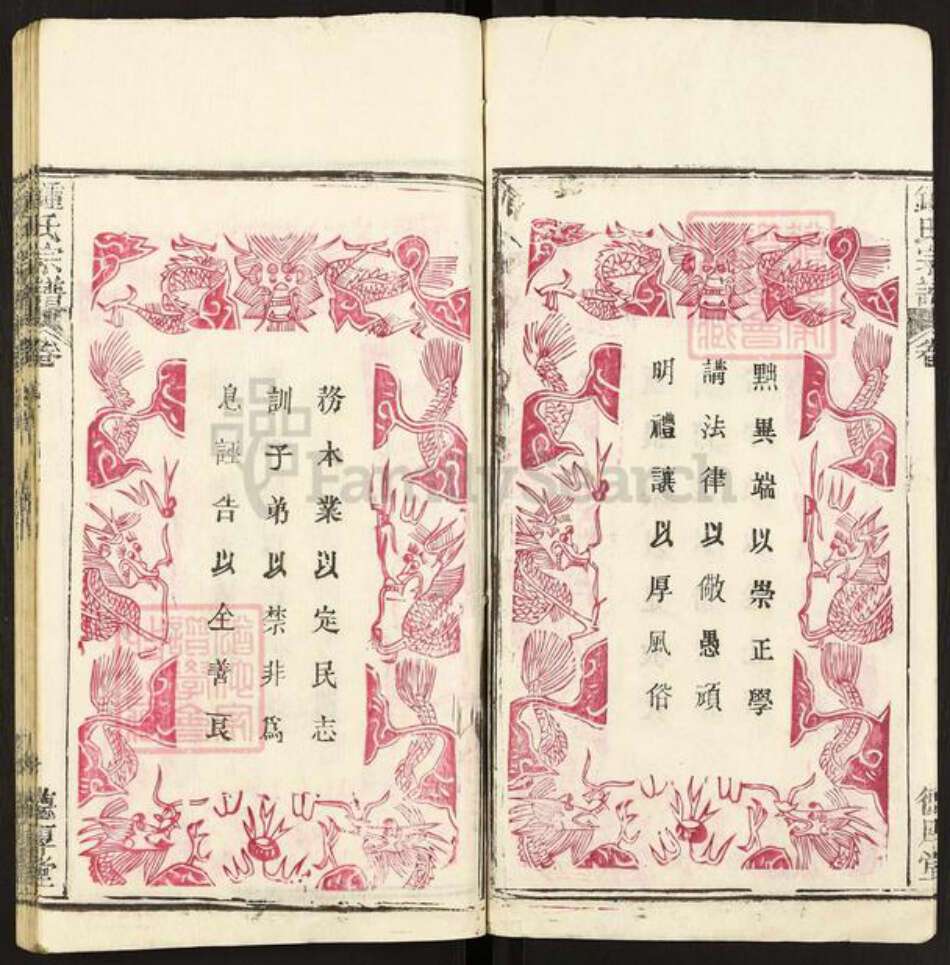 黜異端以崇正學
講法律以儆愚頑
明禮讓以厚風俗
務本業以定民志
訓子弟以禁非爲
息誣告以全善良
鍾氏宗譜 卷
德厚堂
鍾氏宗譜 卷
德厚堂
FamilySearch